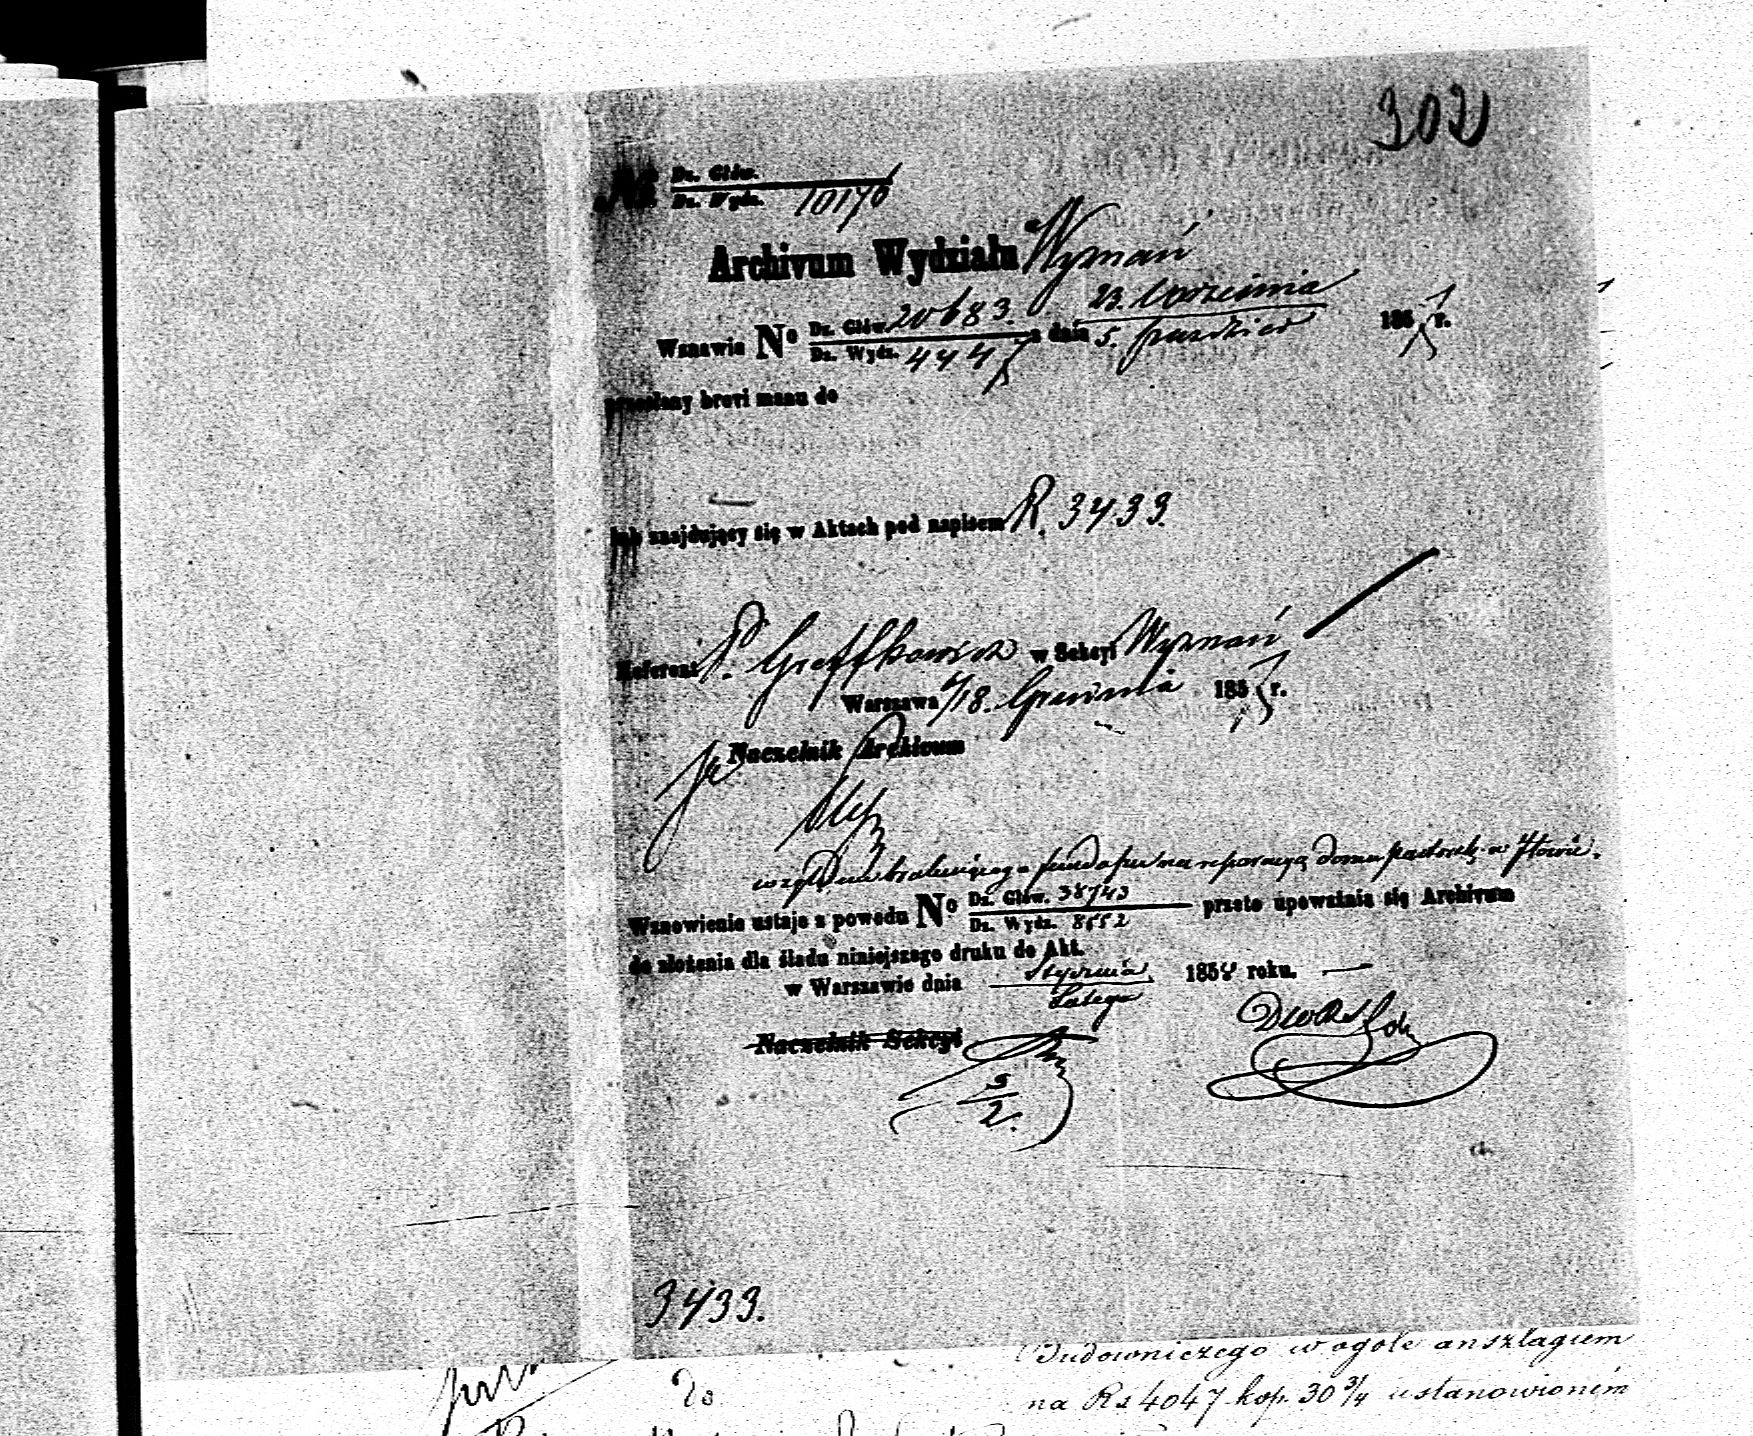 302
No Dz. Głów.
Dz. Wydz. 10170
Archivum Wydziału Wyznań
Wznawia No Dz. Głów. 20683 z dnia 23. Września 1857 r.
Dz. Wydz. 4447 5. Paździer
przesłany brevi manu do
lub znajdujący się w Aktach pod napisem R. 3433.
Referent P. Greffkowicz w Sekcyi Wyznań
Warszawa 6/18. Grudnia 1857 r.
Naczelnik Archivum
względem brakującego funduszu na reparacyą domu pastorsk. w Iłowie.
Wznowienie ustaje z powodu No Dz. Głów. 38743 przeto upoważnia się Archivum
Dz. Wydz. 8552
do złożenia dla śladu niniejszego druku do Akt.
w Warszawie dnia Stycznia 1858 roku.
Lutego
Naczelnik Sekcyi
3/2.
3433.
Budowniczego w ogóle anszlagiem
na Rs 4047 kop. 30 3/4 ustanowionem